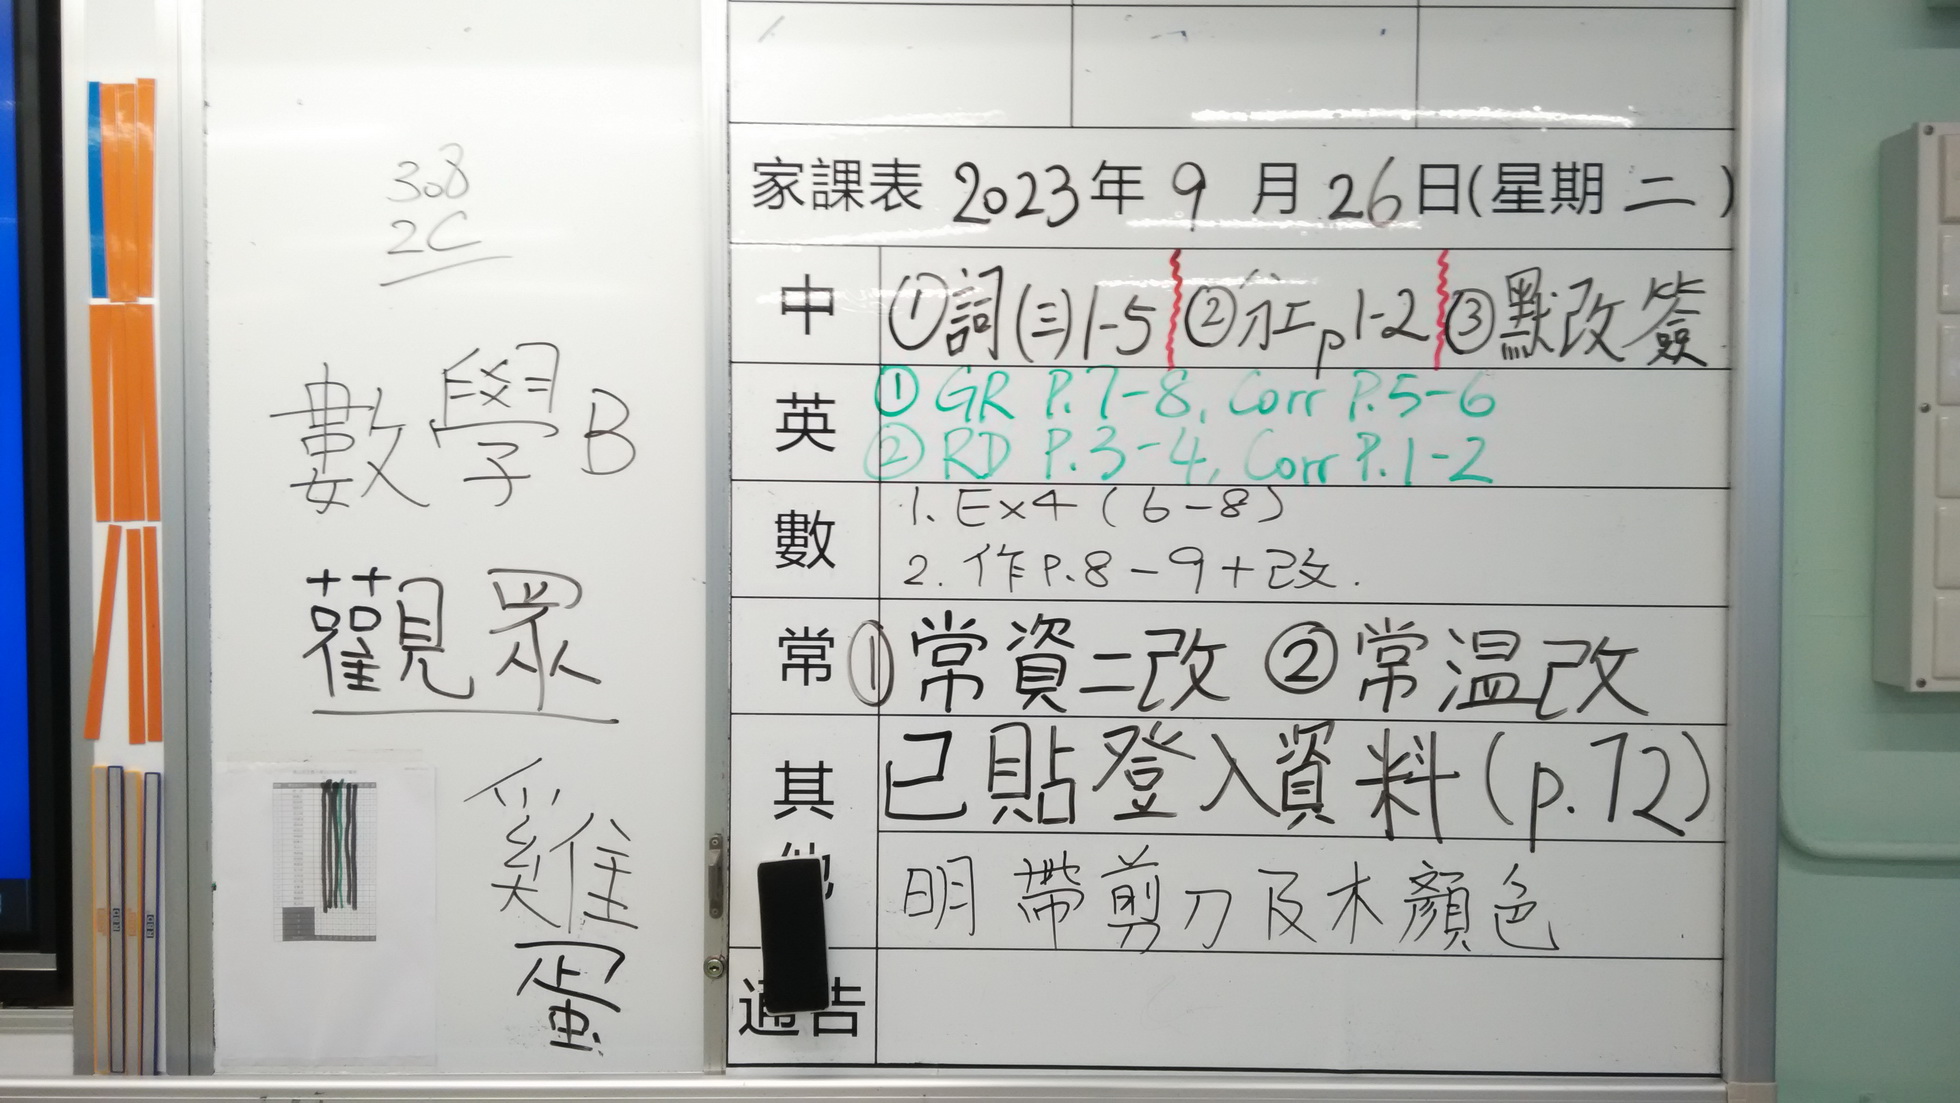 308
2C
數學B
觀眾
雞
蛋
家課表 2023年 9 月 26日(星期 二 )
中 ①詞(三)1-5 ②糿p1-2 ③默改簽
英 ① GR P.7-8, Corr P.5-6
② RD P.3-4, Corr P.1-2
數 1. Ex4 (6-8)
2. 作P.8-9+改.
常 ①常資二改 ②常温改
其 已貼登入資料(p.72)
明帶剪刀及木顏色
通告